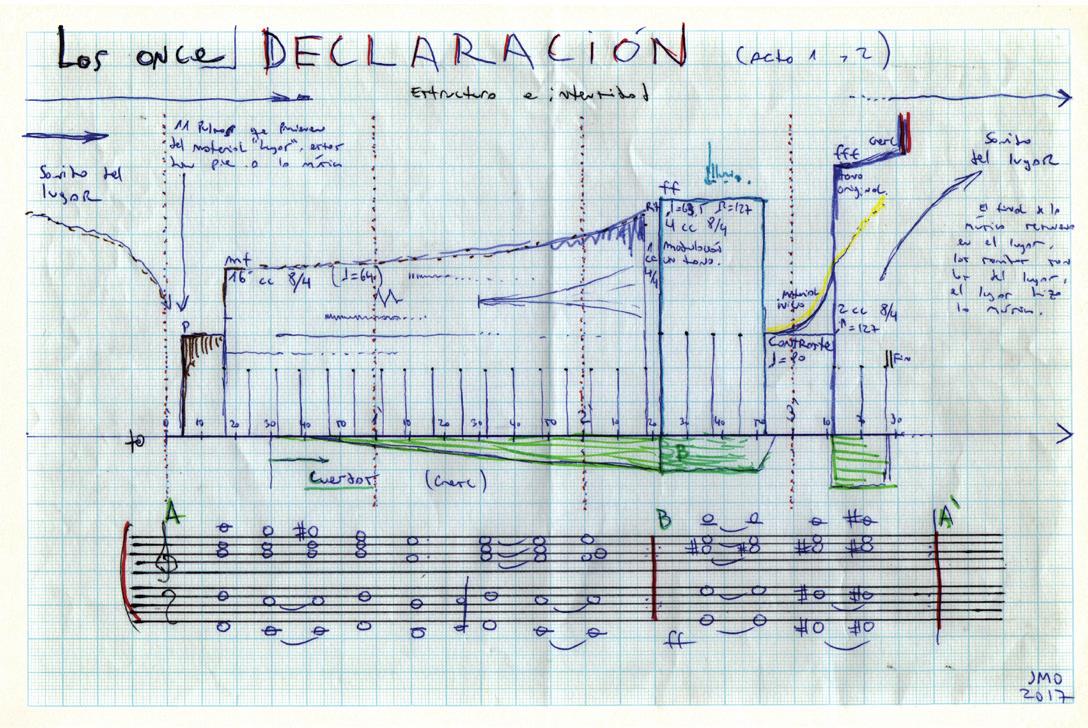 Los once DECLARACIÓN (Acto 1 , 2)
Estructura e intensidad
11 Pulsos que provienen
del material "lugar", estos
dan pie a la música
Sonido del
lugaR
P
mf
16 cc 8/4 (♩=64)
Rit
1
cc
4/4
ff
lluvia.
♩=63,5 ♪=127
4 cc 8/4
modulación
un tono.
material
inicio
Contraste
♩=80
fff
cresc
tono
original.
2 cc 8/4
♪=127
Fin
Sonido
del lugaR
El final de la
música retorna
en el lugar,
los sonidos son
los del lugar,
el lugar hizo
la música.
0 10 20 30 40 50 1' 10 20 30 40 50 2' 10 20 30 40 50 3' 10 20 30
Cuerdas (cresc)
B
A B A'
ff
JMO
2017